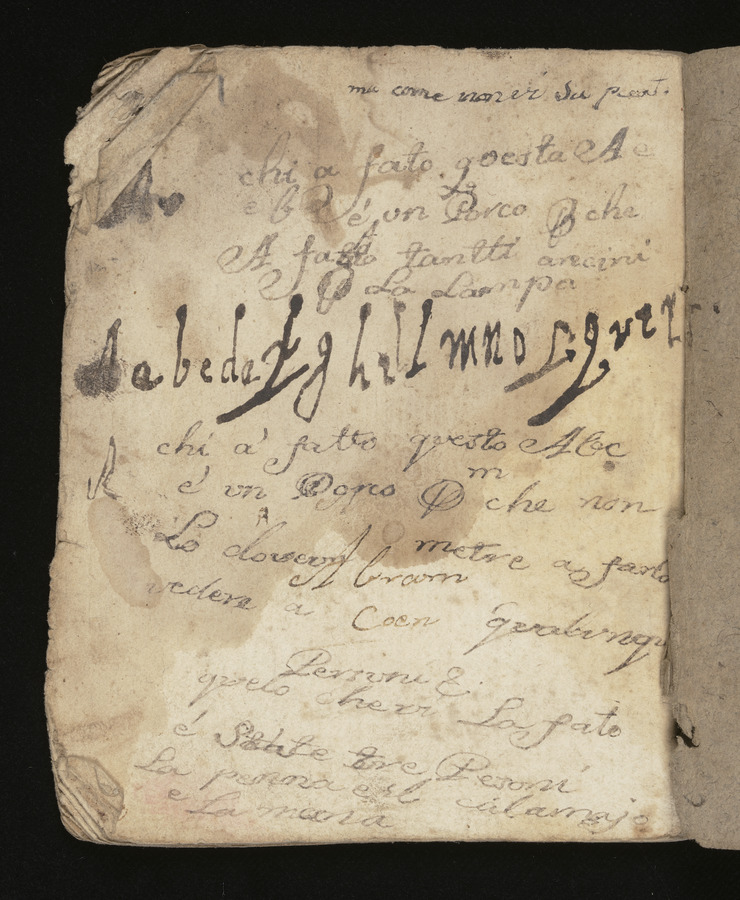 ma come non vi su
chi a fato questa A e
e b é un Porco P che
A fatto tantti ancini
P La Lampa
A a b c d e f g h i l l m n o p q u r
chi a' fatto questo Abc
é un Porco P che non
m
Lo doveva metre a farlo
Abram
vedere a Coen qualunque
Personi
quelo che vi La fato
é state tre Personi
La penna e il calamajo
e La mana